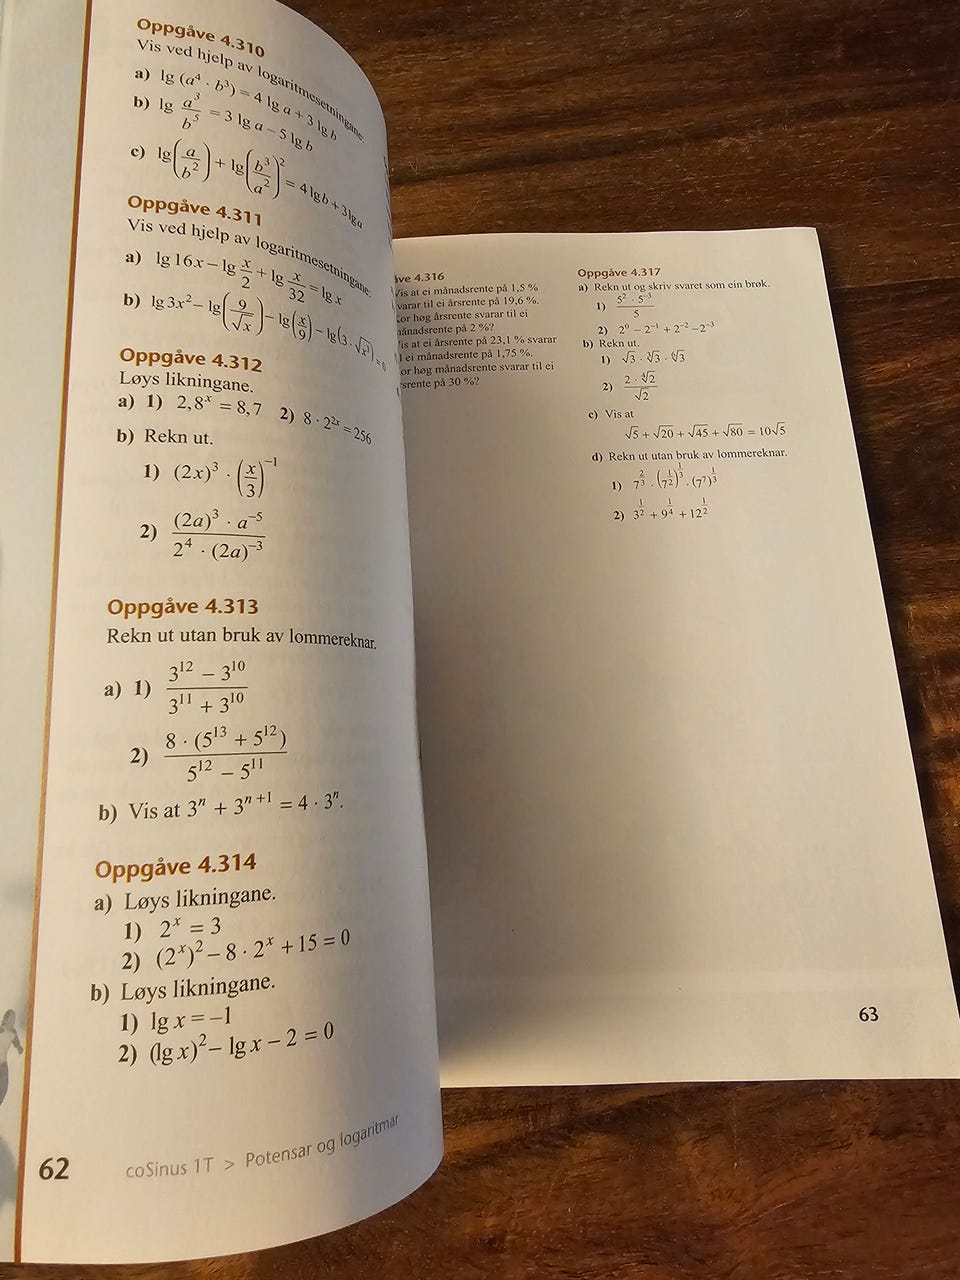 Oppgåve 4.310
Vis ved hjelp av logaritmesetningane:
a) lg (a⁴ · b³) = 4 lg a + 3 lg b
b) lg a³/b⁵ = 3 lg a – 5 lg b
c) lg(a/b²) + lg(b³/a²)² = 4 lg b + 3 lg a
Oppgåve 4.311
Vis ved hjelp av logaritmesetningane:
a) lg 16x – lg x/2 + lg x/32 = lg x
b) lg 3x² – lg(9/√x) – lg(x/9) – lg(3 · √x³) = 0
Oppgåve 4.312
Løys likningane.
a) 1) 2,8ˣ = 8,7 2) 8 · 2²ˣ = 256
b) Rekn ut.
1) (2x)³ · (x/3)⁻¹
2) (2a)³ · a⁻⁵ / 2⁴ · (2a)⁻³
Oppgåve 4.313
Rekn ut utan bruk av lommereknar.
a) 1) 3¹² – 3¹⁰ / 3¹¹ + 3¹⁰
2) 8 · (5¹³ + 5¹²) / 5¹² – 5¹¹
b) Vis at 3ⁿ + 3ⁿ⁺¹ = 4 · 3ⁿ.
Oppgåve 4.314
a) Løys likningane.
1) 2ˣ = 3
2) (2ˣ)² – 8 · 2ˣ + 15 = 0
b) Løys likningane.
1) lg x = –1
2) (lg x)² – lg x – 2 = 0
62 coSinus 1T > Potensar og logaritmar
4.316
at ei månadsrente på 1,5 %
til ei årsrente på 19,6 %.
høg årsrente svarar til ei
på 2 %?
at ei årsrente på 23,1 % svarar
ei månadsrente på 1,75 %.
høg månadsrente svarar til ei
på 30 %?
Oppgåve 4.317
a) Rekn ut og skriv svaret som ein brøk.
1) 5² · 5⁻³ / 5
2) 2⁰ – 2⁻¹ + 2⁻² – 2⁻³
b) Rekn ut.
1) √3 · ∛3 · ⁶√3
2) 2 · ⁴√2 / √2
c) Vis at
√5 + √20 + √45 + √80 = 10√5
d) Rekn ut utan bruk av lommereknar.
1) 7^(2/3) · (7^(1/2))^(1/3) · (7⁷)^(1/3)
2) 3^(1/2) + 9^(1/4) + 12^(1/2)
63